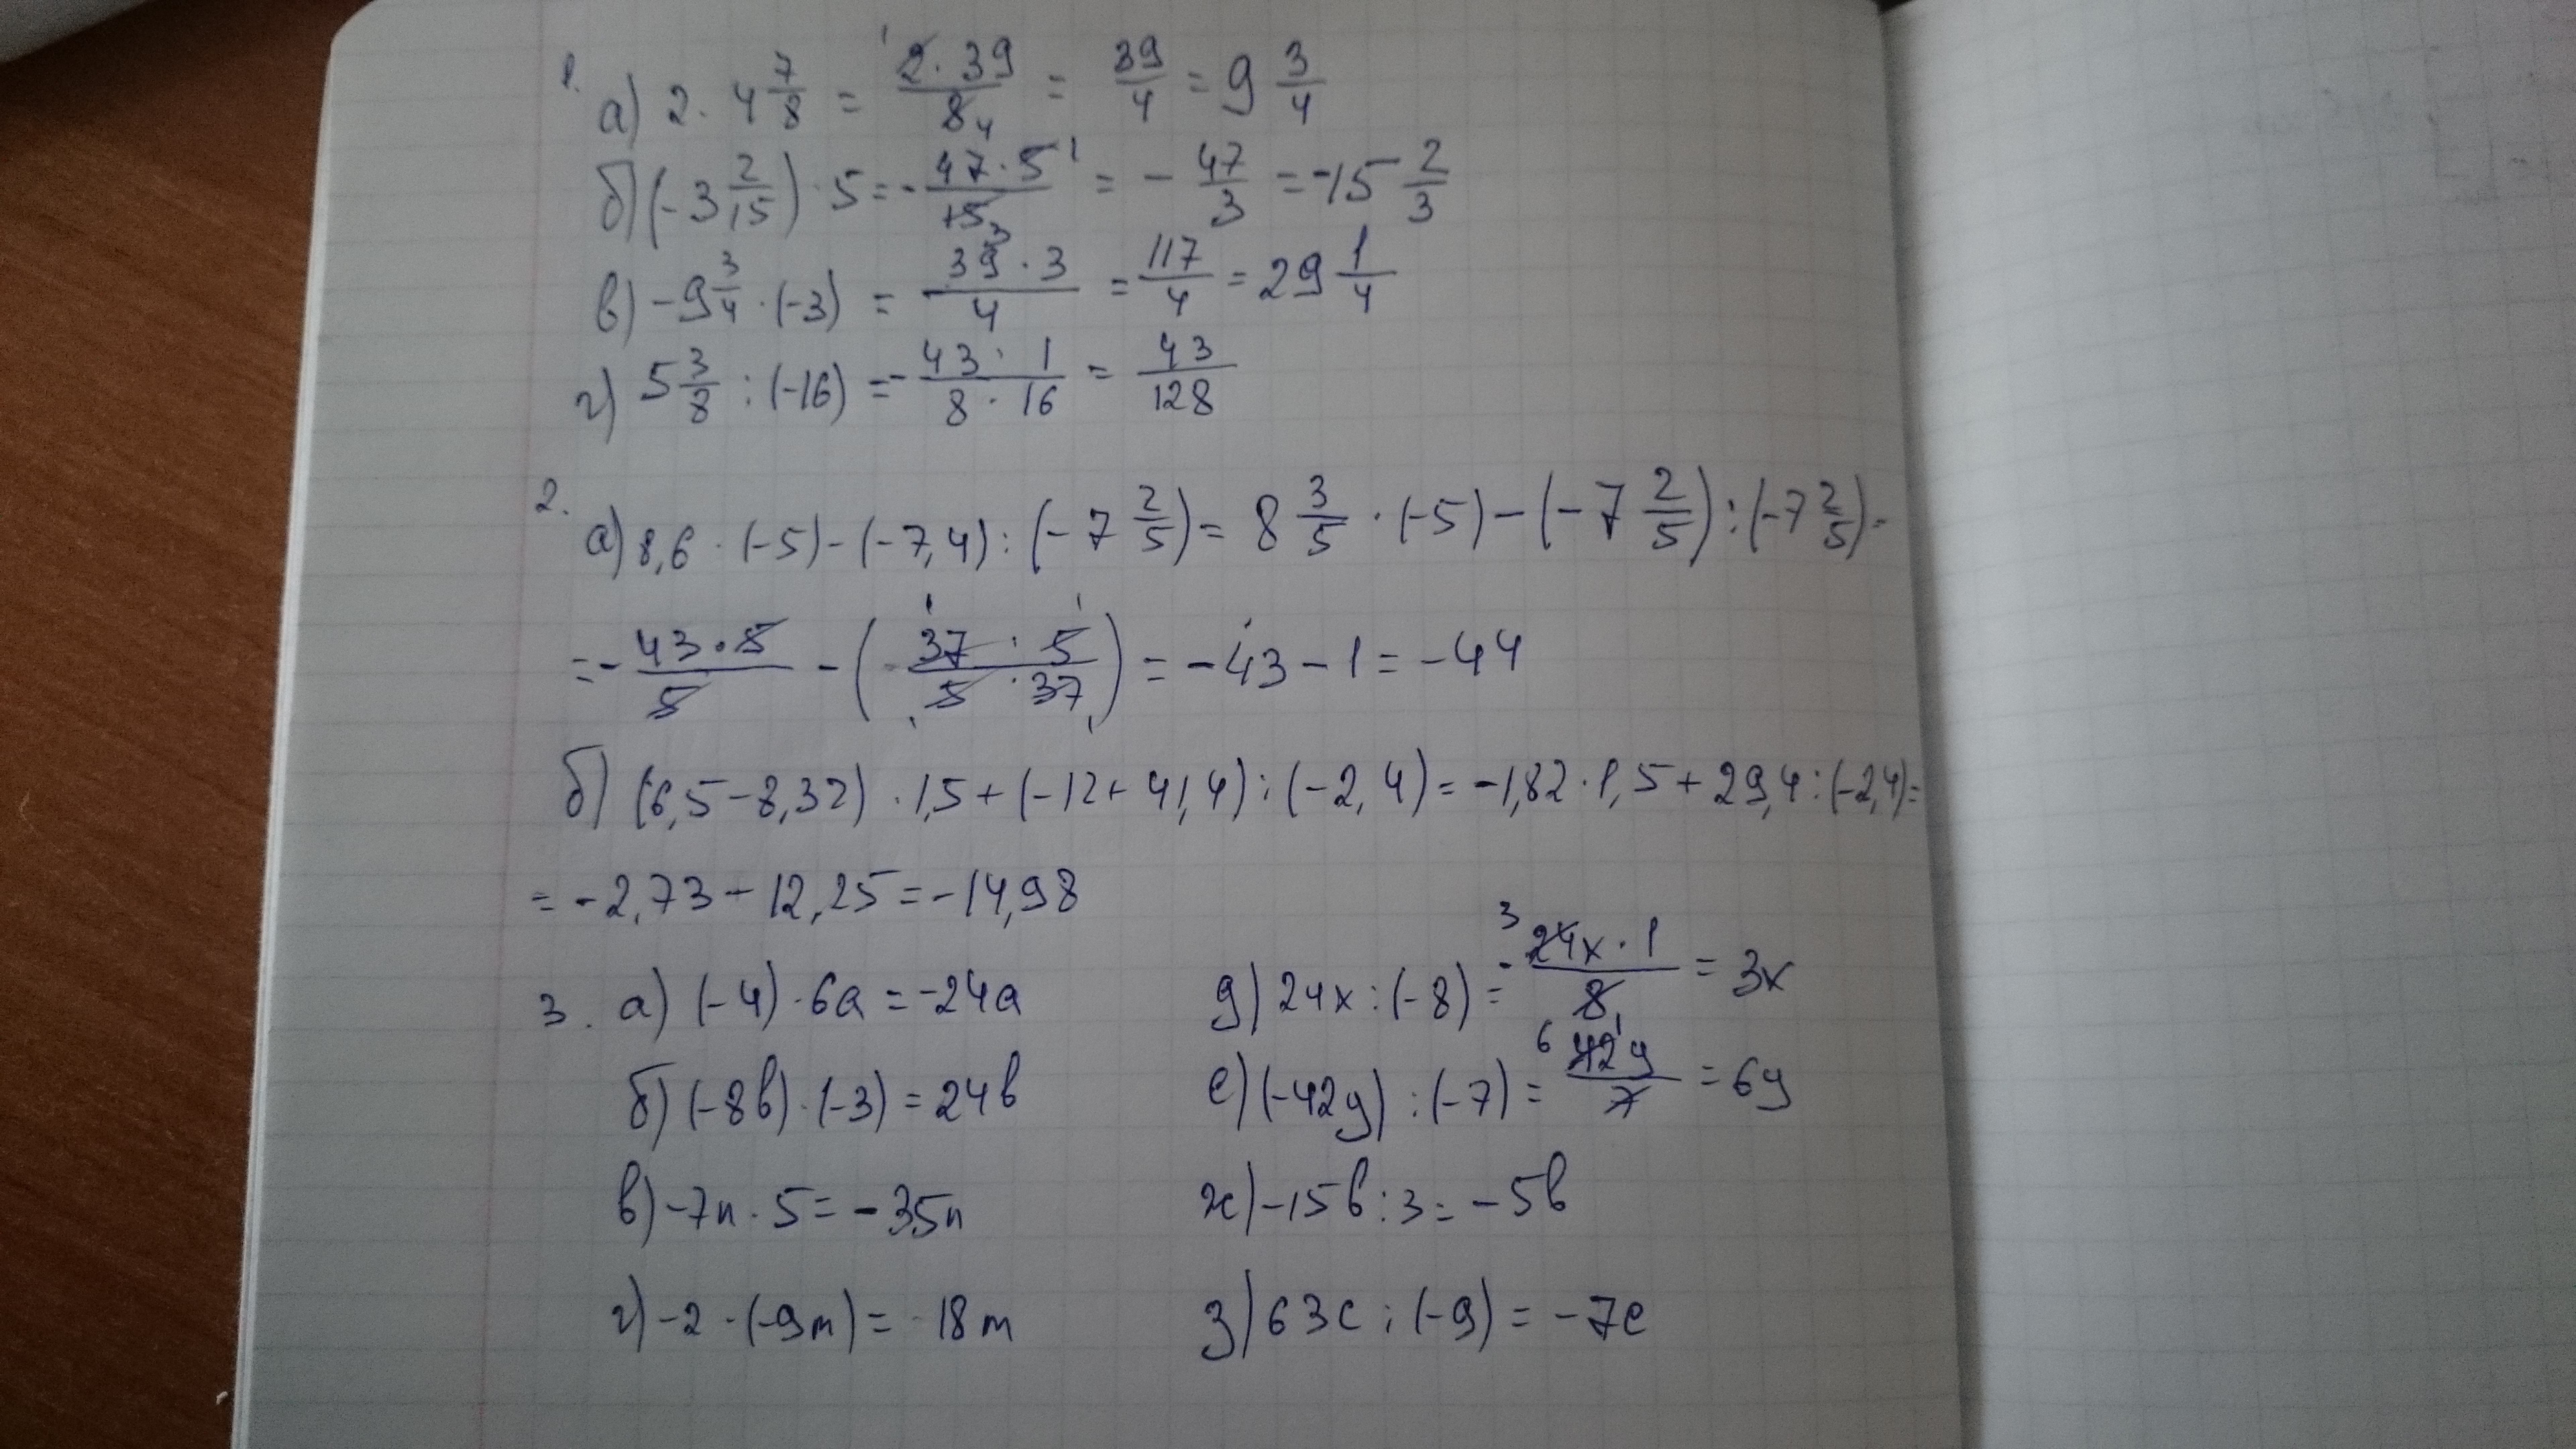 1.
а) 2 · 4 7/8 = 2 · 39 / 8 4 = 39/4 = 9 3/4
б) (-3 2/15) · 5 = - 47 · 5 / 15 3 = - 47/3 = -15 2/3
в) -9 3/4 · (-3) = 39 · 3 / 4 = 117/4 = 29 1/4
г) 5 3/8 : (-16) = - 43 · 1 / 8 · 16 = 43/128
2.
а) 8,6 · (-5) - (-7,4) : (-7 2/5) = 8 3/5 · (-5) - (-7 2/5) : (-7 2/5) =
= - 43 · 5 / 5 - (37 · 5 / 5 · 37) = -43 - 1 = -44
б) (6,5 - 8,32) · 1,5 + (-12 + 41,4) : (-2,4) = -1,82 · 1,5 + 29,4 : (-2,4) =
= -2,73 - 12,25 = -14,98
3. а) (-4) · 6а = -24а
б) (-8в) · (-3) = 24в
в) -7n · 5 = -35n
г) -2 · (-9m) = 18m
д) 24х : (-8) = - 3 24х · 1 / 8 1 = 3х
е) (-42у) : (-7) = 6 42у / 7 = 6у
ж) -15в : 3 = -5в
з) 63с : (-9) = -7с